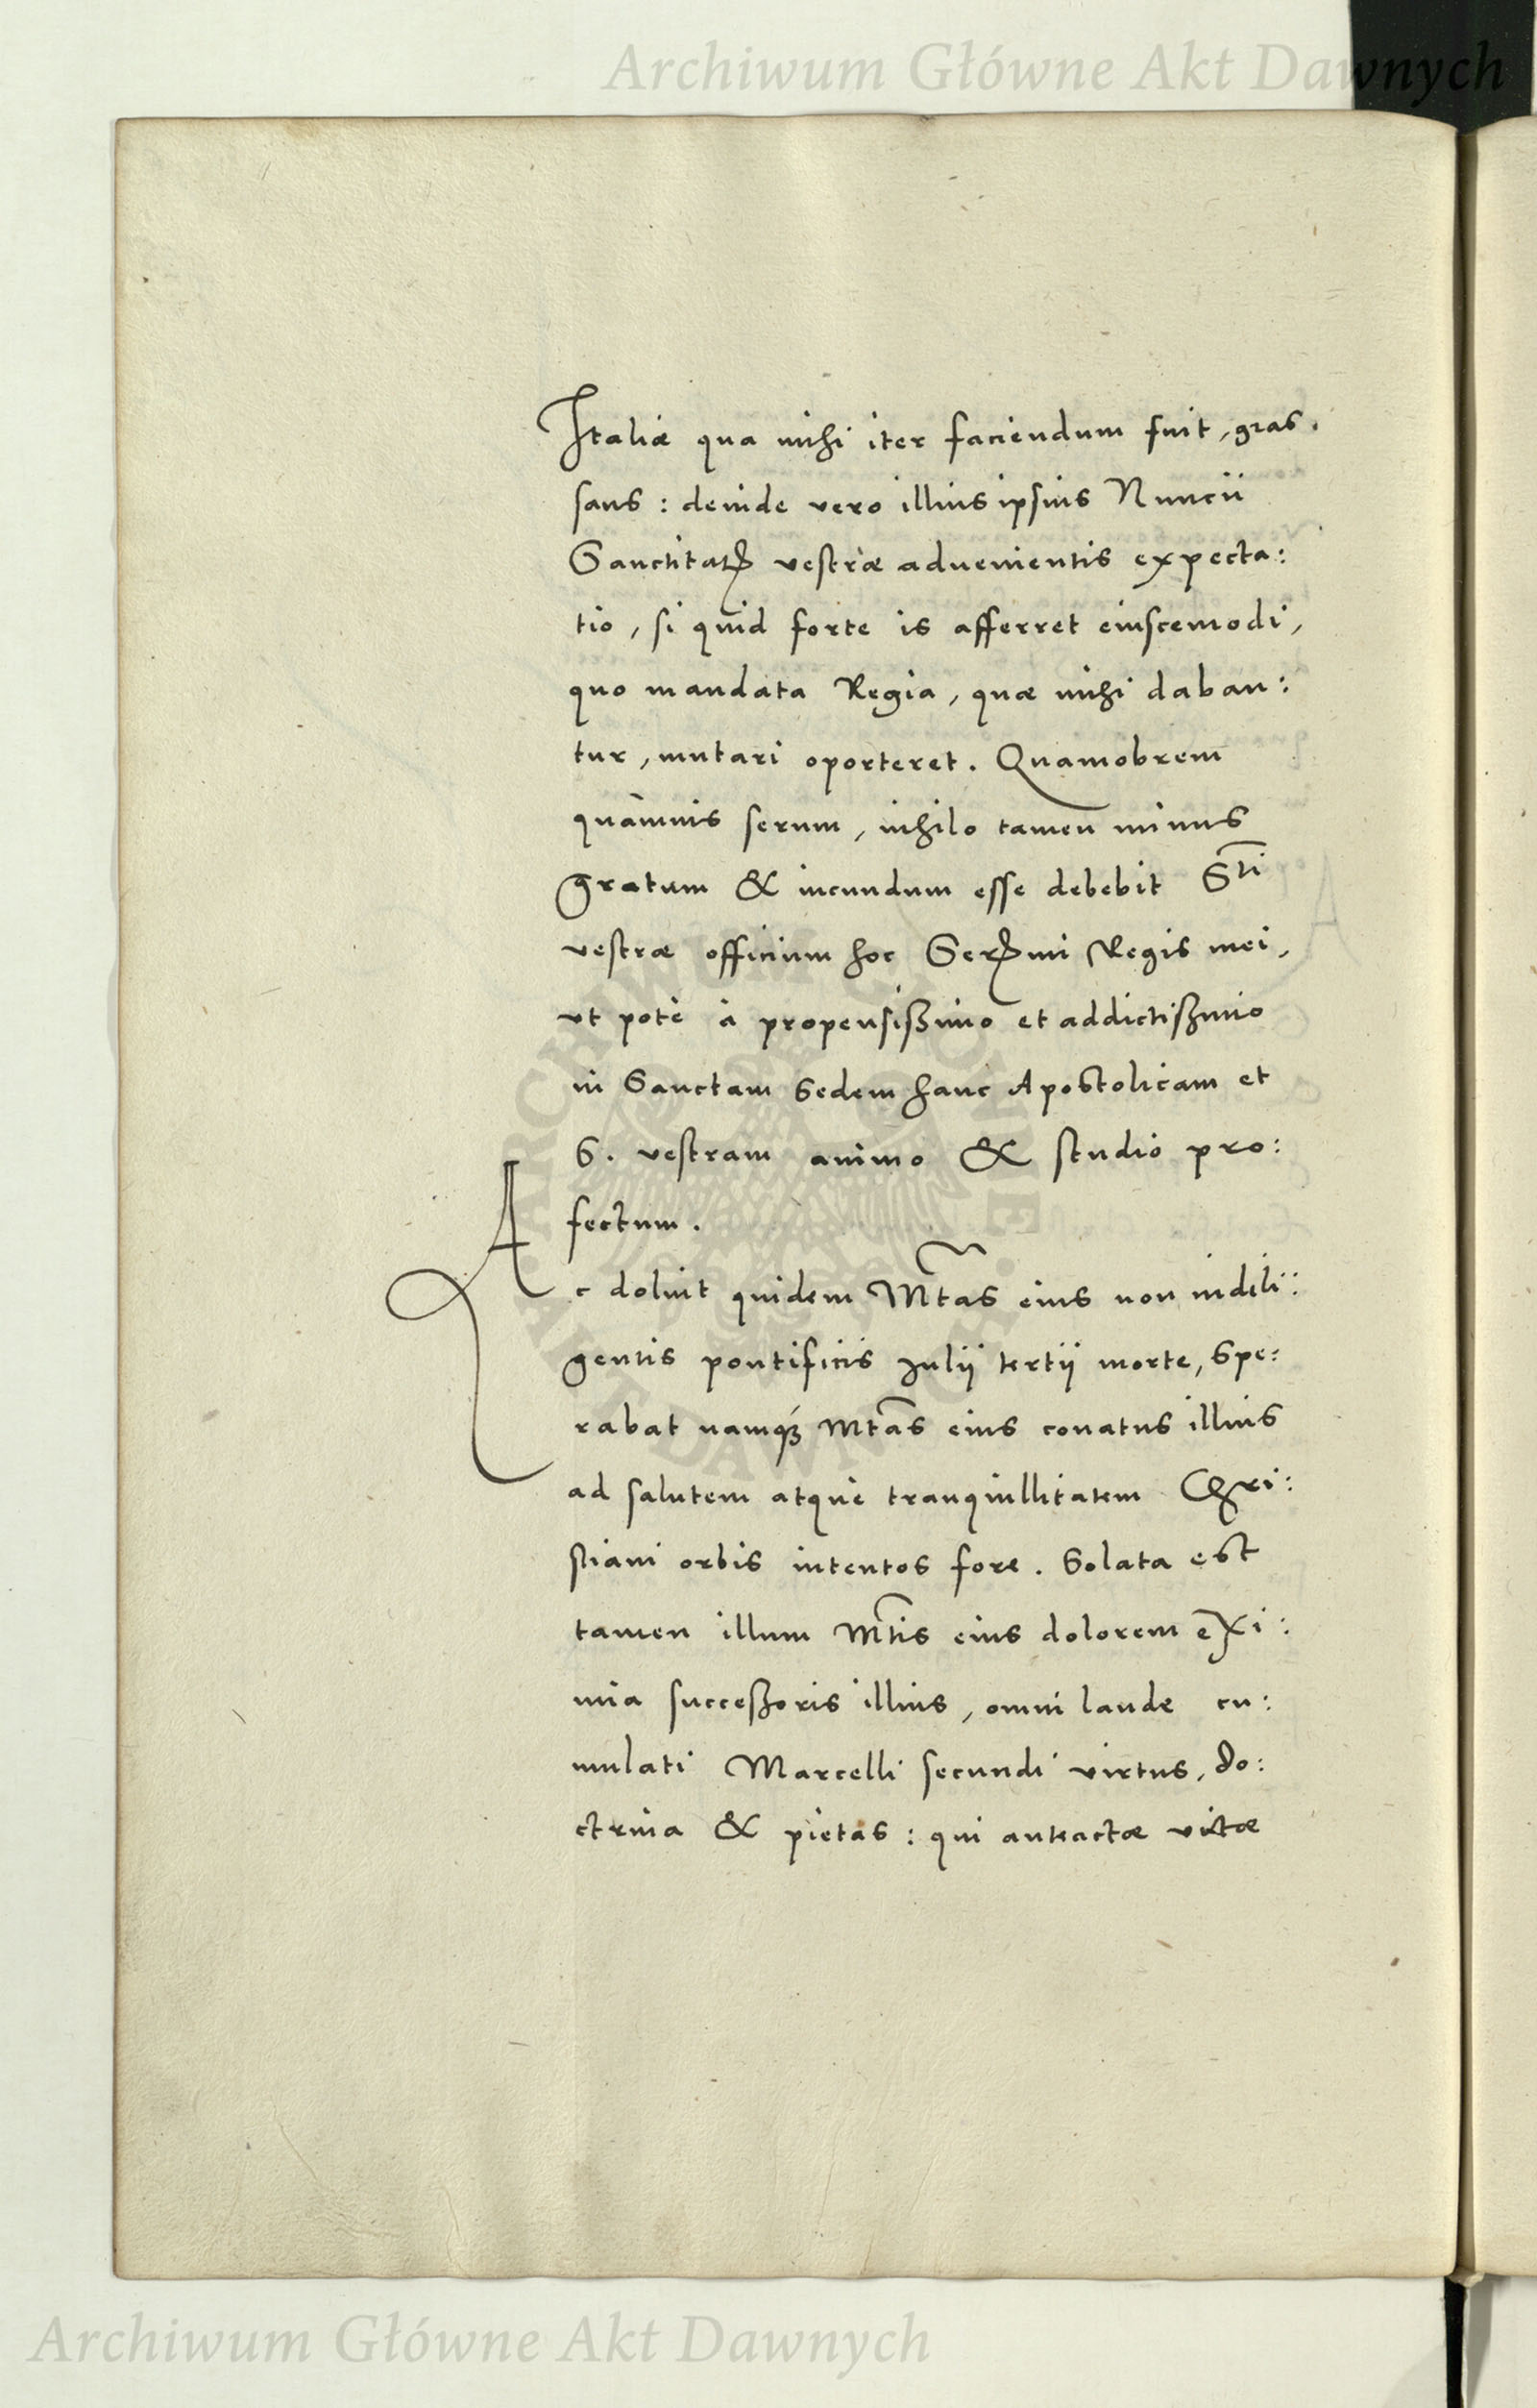 Archiwum Główne Akt Dawnych
Italiæ qua mihi iter faciendum fuit, gras:
sans: deinde vero illius ipsius Nuncii
Sanctitatis vestræ aduenientis expecta:
tio, si quid forte is afferret eiuscemodi,
quo mandata Regia, quæ mihi daban:
tur, mutari oporteret. Quamobrem
quamuis serum, nihilo tamen minus
gratum & iucundum esse debebit Sti
vestræ officium hoc Sermi Regis mei,
ut potè à propensißimo et addictißimo
in Sanctam Sedem hanc Apostolicam et
S. vestram animo & studio pro:
fectum.
Ac doluit quidem Mtas eius non indili:
gentis pontificis Julij tertij morte, Spe:
rabat namq; Mtas eius conatus illius
ad salutem atque tranquillitatem Chri:
stiani orbis intentos fore. Solata est
tamen illum Mtis eius dolorem exi:
mia succeßoris illius, omni laude cu:
mulati Marcelli secundi virtus, do:
ctrina & pietas: qui anteactæ vitæ
ARCHIWUM GŁÓWNE AKT DAWNYCH
Archiwum Główne Akt Dawnych